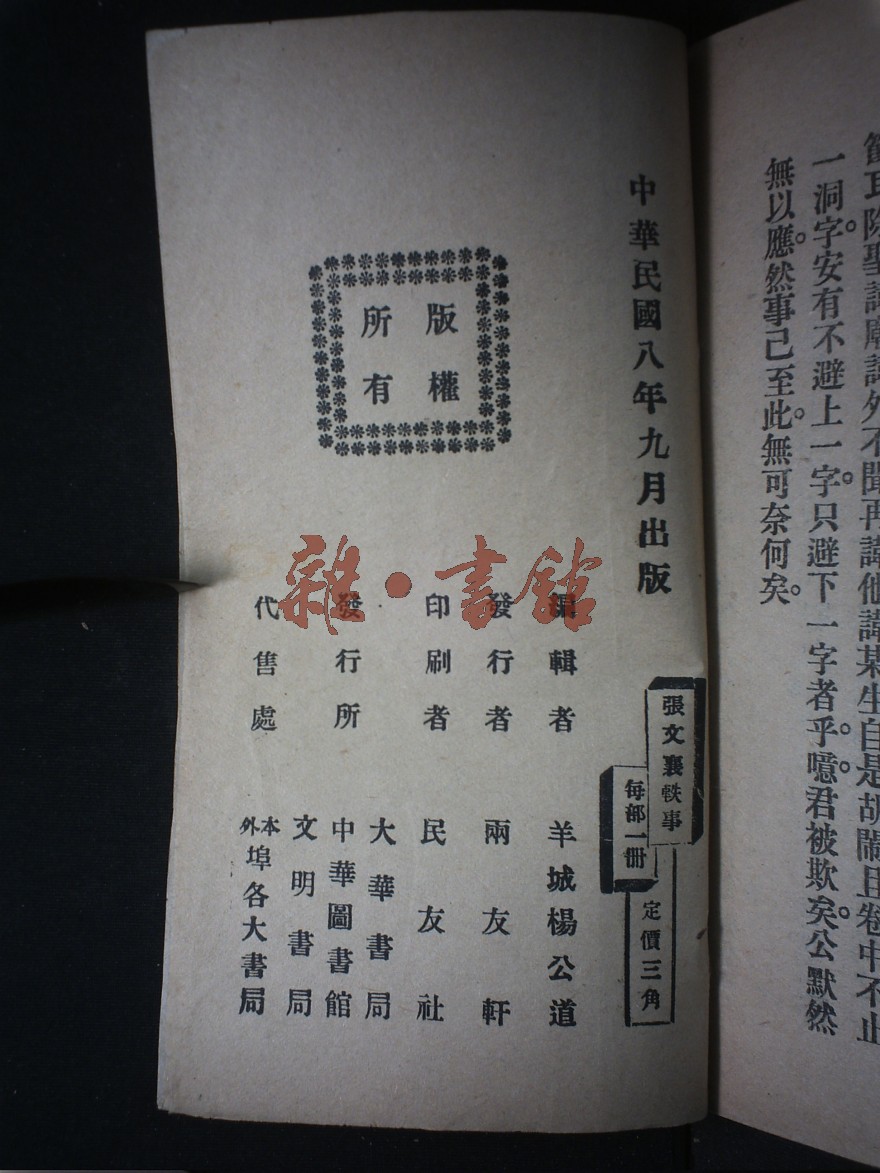 無以應然事已至此無可奈何矣。
一洞字。安有不避上一字。只避下一字者乎。噫。君被欺矣。公默然
耳除聖諱廟諱外不聞再諱他諱某生自是胡鬧且卷中不止
中華民國八年九月出版
版權
所有
張文襄軼事
每部一冊
定價三角
編輯者 羊城楊公道
發行者 兩友軒
印刷者 民友社
發行所 大華書局
中華圖書館
文明書局
代售處 本外埠各大書局
雜・書館